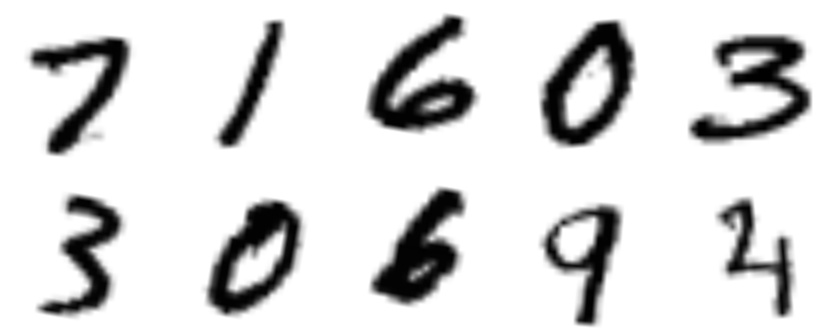 7 1 6 0 3
3 0 6 9 4